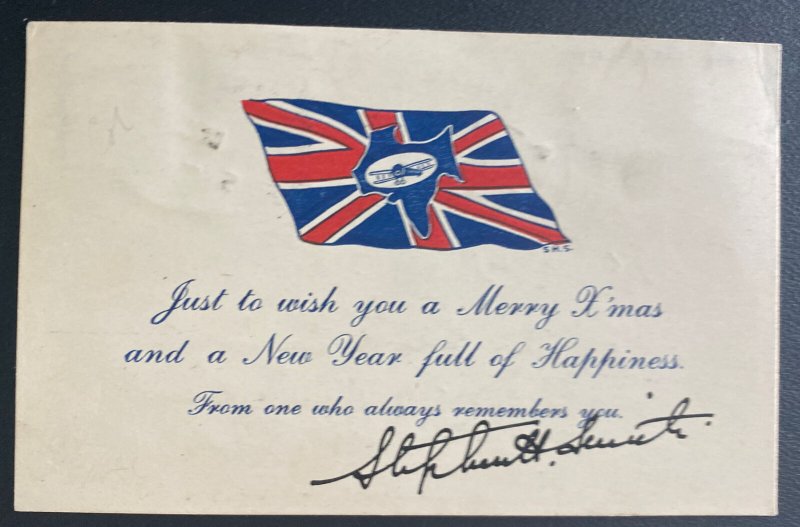 S.H.S.
Just to wish you a Merry X'mas
and a New Year full of Happiness.
From one who always remembers you.
Stephen H. Smith.